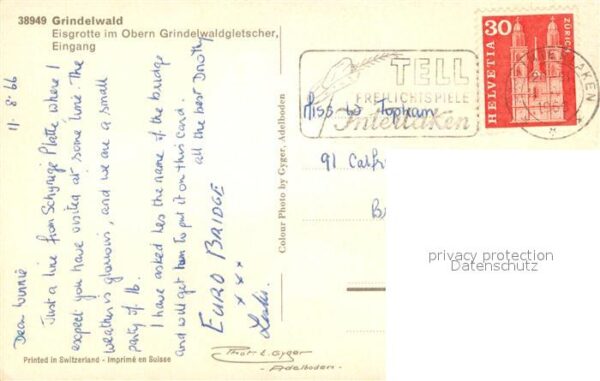 38949 Grindelwald
Eisgrotte im Obern Grindelwaldgletscher,
Eingang
11.8.66
Dear Winnie
Just a line from Schynige Platte where I
expect you have visited at some time. The
weather is glorious, and we are a small
party of 16.
I have asked Les the name of the bridge
and will get him to put it on this card.
all the best Dorothy
EURO BRIDGE
x x x
Leslie.
Printed in Switzerland - Imprimé en Suisse
Colour Photo by Gyger, Adelboden
Phot. E. Gyger
- Adelboden -
TELL
FREILICHTSPIELE
Interlaken
30
HELVETIA
ZÜRICH
INTERLAKEN
Miss W Topham
91
privacy protection
Datenschutz